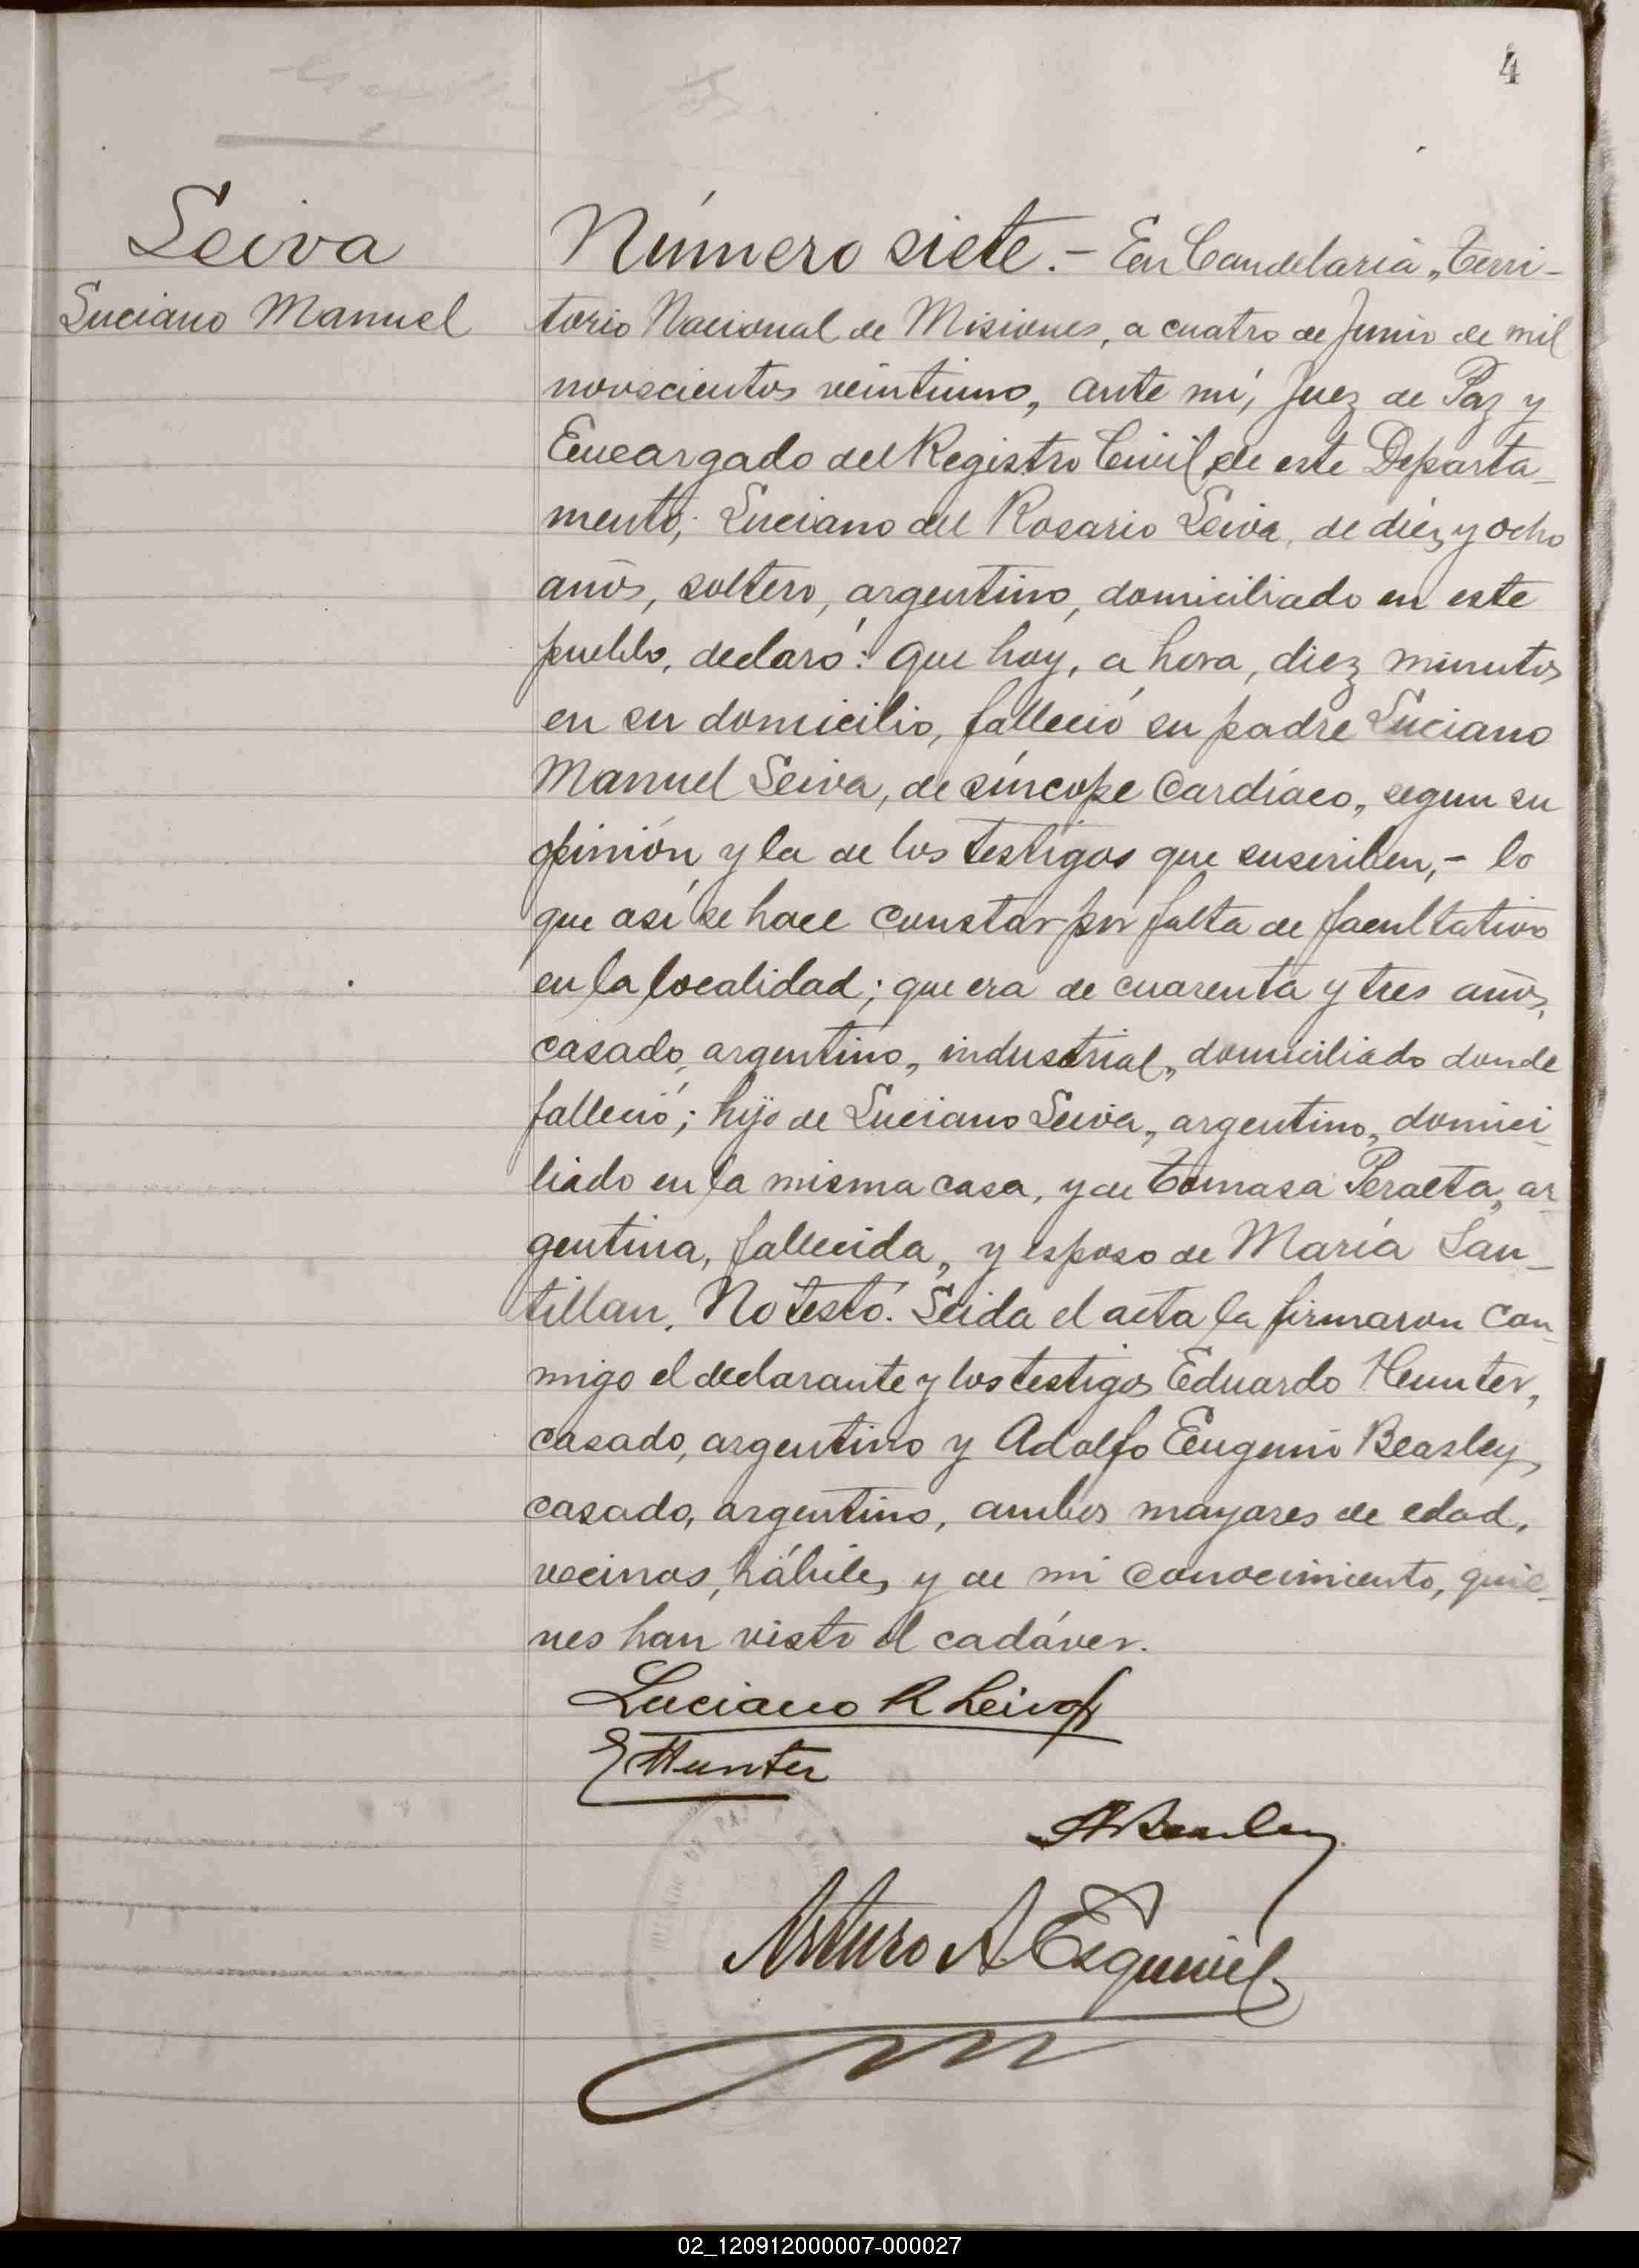 4
Leiva
Luciano Manuel
Número siete.- En Candelaria, Terri-
torio Nacional de Misiones, a cuatro de Junio de mil
novecientos veintiuno, ante mí, Juez de Paz y
Encargado del Registro Civil de este Departa-
mento; Luciano del Rosario Leiva, de diez y ocho
años, soltero, argentino, domiciliado en este
pueblo, declaró: que hoy, a hora, diez minutos
en su domicilio, falleció su padre Luciano
Manuel Leiva, de síncope cardíaco, segun su
opinión y la de los testigos que suscriben,- lo
que así se hace constar por falta de facultativo
en la localidad; que era de cuarenta y tres años,
casado, argentino, industrial, domiciliado donde
falleció; hijo de Luciano Leiva, argentino, domici-
liado en la misma casa, y de Tomasa Peralta, ar-
gentina, fallecida, y esposo de María San-
tillan. No testó. Leida el acta la firmaron con-
migo el declarante y los testigos Eduardo Hunter,
casado, argentino y Adolfo Eugenio Beasley,
casado, argentino, ambos mayores de edad,
vecinos, hábiles y de mi conocimiento, quie-
nes han visto el cadáver.
Luciano R Leiva
E Hunter
A Beasley
Arturo A Esquivel
02_120912000007-000027